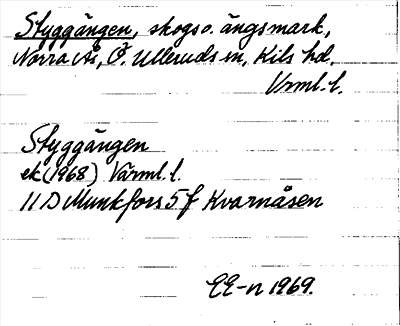 Styggängen, skogs o. ängsmark,
Norra Ås, Ö. Ulleruds sn, Kils hd,
Vrml. l.
Styggängen
ek (1968) Värml. l.
11 D Munkfors 5 f Kvarnåsen
EE-n 1969.